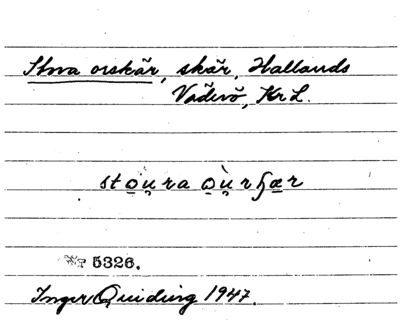 Stora orskär, skär, Hallands
Väderö, Kr L.
sto̤ù̯ra o̤ù̯rɧæ̤r
5326.
Inger Quiding 1947.